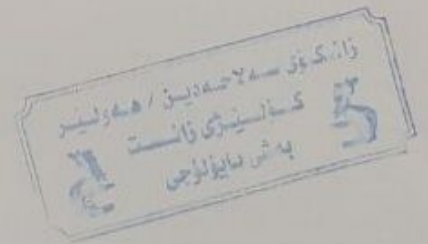 زانکۆی سەلاحەدین / هەولێر
کۆلیژی زانست
بەش بایۆلۆجی